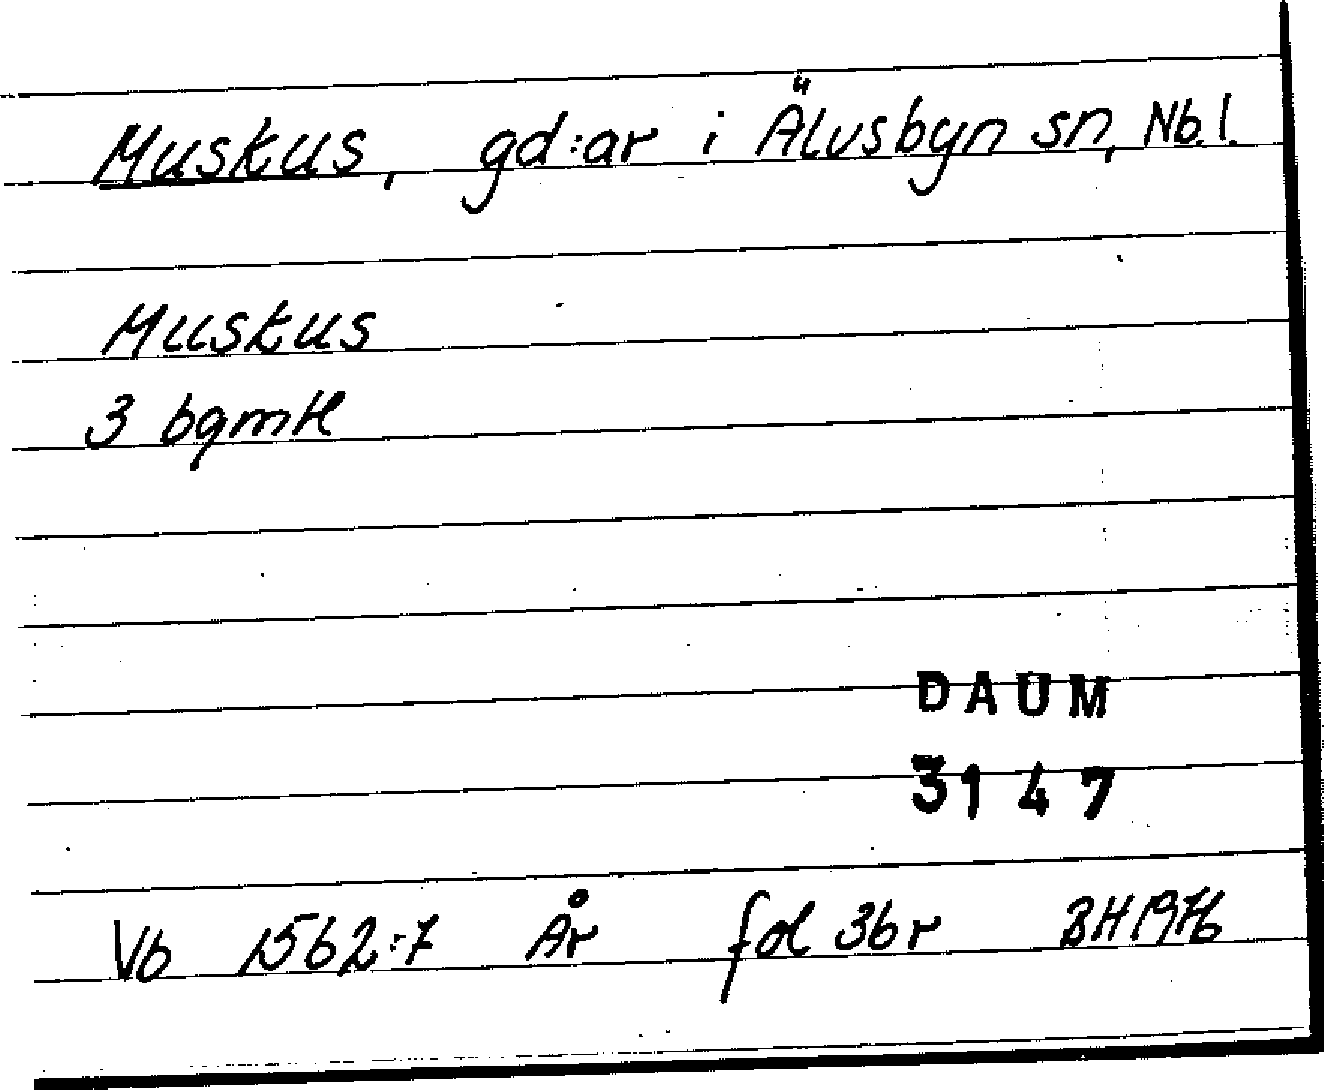 Muskus, gd:ar i Älvsbyn sn, Nb.l.
Muskus
3 bgmtl
DAUM
3147
Vb 1562:7 År fol 36r BH 1976